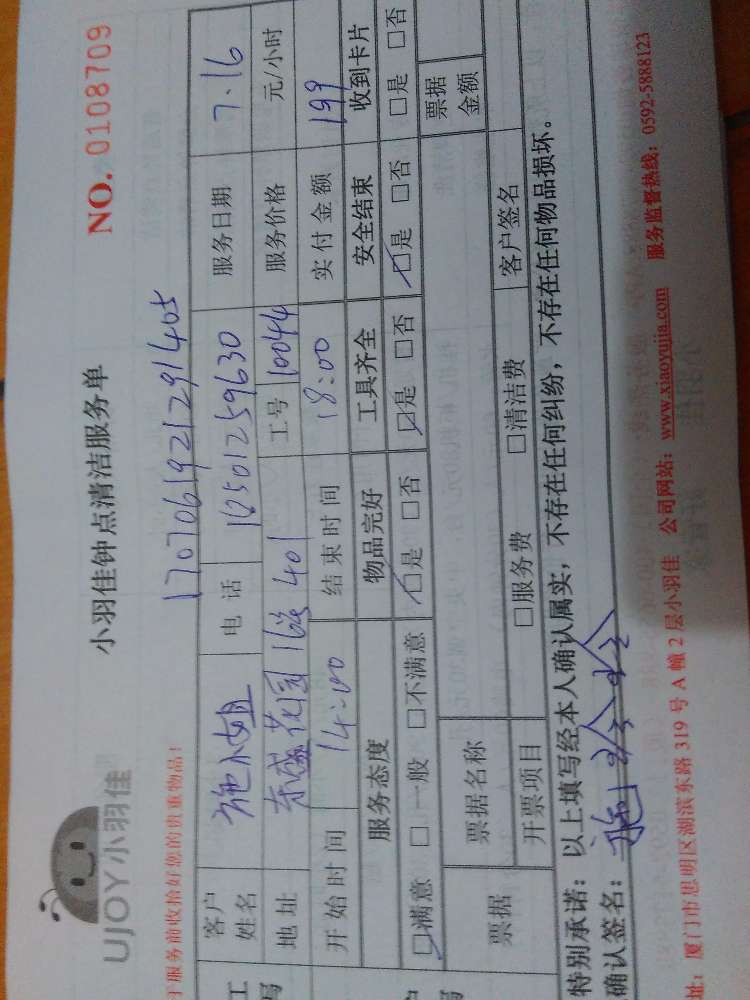 UJOY小羽佳
小羽佳钟点清洁服务单
NO. 0108709
于服务前收拾好您的贵重物品!
170706192129 1405
客户姓名 施小姐 电话 18501259630 服务日期 7.16
地址 东盛花园 401 工号 10044 服务价格 元/小时
开始时间 14:00 结束时间 18:00 实付金额 199
服务态度 物品完好 工具齐全 安全结束 收到卡片
☑满意 □一般 □不满意 ☑是 □否 ☑是 □否 ☑是 □否 □是 □否
票据 票据名称 票据金额
开票项目 □服务费 □清洁费 客户签名
特别承诺:以上填写经本人确认属实,不存在任何纠纷,不存在任何物品损坏。
确认签名:
址:厦门市思明区湖滨东路 319 号 A 幢 2 层小羽佳 公司网站:www.xiaoyujia.com 服务监督热线:0592-5888123